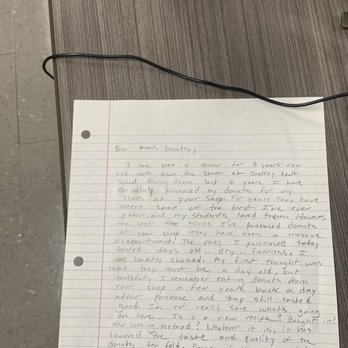 Dear Donuts,
I have been a teacher for 8 years now
and work down the street at Adult
School. During these last 8 years, I have
purchased my donuts for my
class at your shop. For years they have
been some of the best I've ever
eaten and my students loved them. However,
the last two times I've purchased donuts
at your shop have been a massive
disappointment. The ones I purchased today
tasted days old, dry, tasteless. I
was honestly shocked. My first thought was
that they must be a day old, but
truthfully I remember eating donuts from
your shop a few years back a day
after purchase and they still tasted
good. I'm not really sure what's going
on here. Is it a new recipe? Bought in?
method? Whatever it is, it has
lowered the taste and quality of the
donuts ten fold.